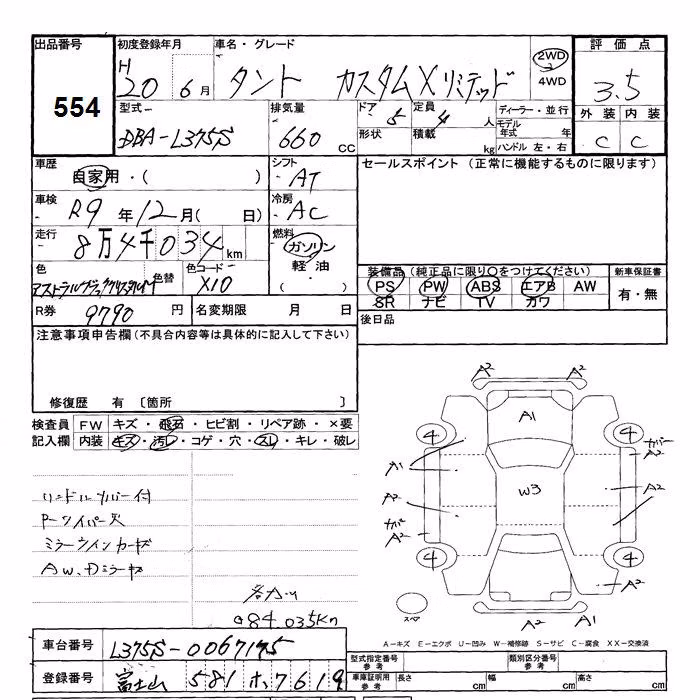 出品番号 初度登録年月 車名・グレード 評価点
554
H 20 6月 タント カスタムXリミテッド 2WD 4WD 3.5
型式 排気量 ドア 5 定員 4 人 ディーラー・並行 外装 内装
DBA-L375S 660 CC 形状 積載 kg モデル年式 年 ハンドル 左・右 C C
車歴 自家用・( ) シフト AT セールスポイント (正常に機能するものに限ります)
車検 R9年12月( 日) 冷房 AC
走行 8万4千034km 燃料 ガソリン 軽油 ( )
色 色替 色コード X10
装備品(純正品に限り○をつけてください) 新車保証書
PS PW ABS エアB AW 有・無
SR ナビ TV カワ
R券 9790 円 名変期限 月 日 後日品
注意事項申告欄(不具合内容等は具体的に記入して下さい)
修復歴 有 〔箇所 〕
検査員 FW キズ・飛石・ヒビ割・リペア跡・×要
記入欄 内装 キズ・汚レ・コゲ・穴・スレ・キレ・破レ
Pワイパー欠
ミラーウインカーキズ
AW、Dミラーキズ
084.035Km
A2 A2
A1
4 4
A1 カバーA2
W3
A2 A2
カバーA2
4 4
A2
スペア
A2 A1
A-キズ E-エクボ U-凹み W-補修跡 S-サビ C-腐食 XX-交換済
車台番号 L375S-0067175
型式指定番号 参考 類別区分番号 参考
登録番号 富士山 581 ホ 7619
車庫証明用 参考 長さ cm 幅 cm 高さ cm